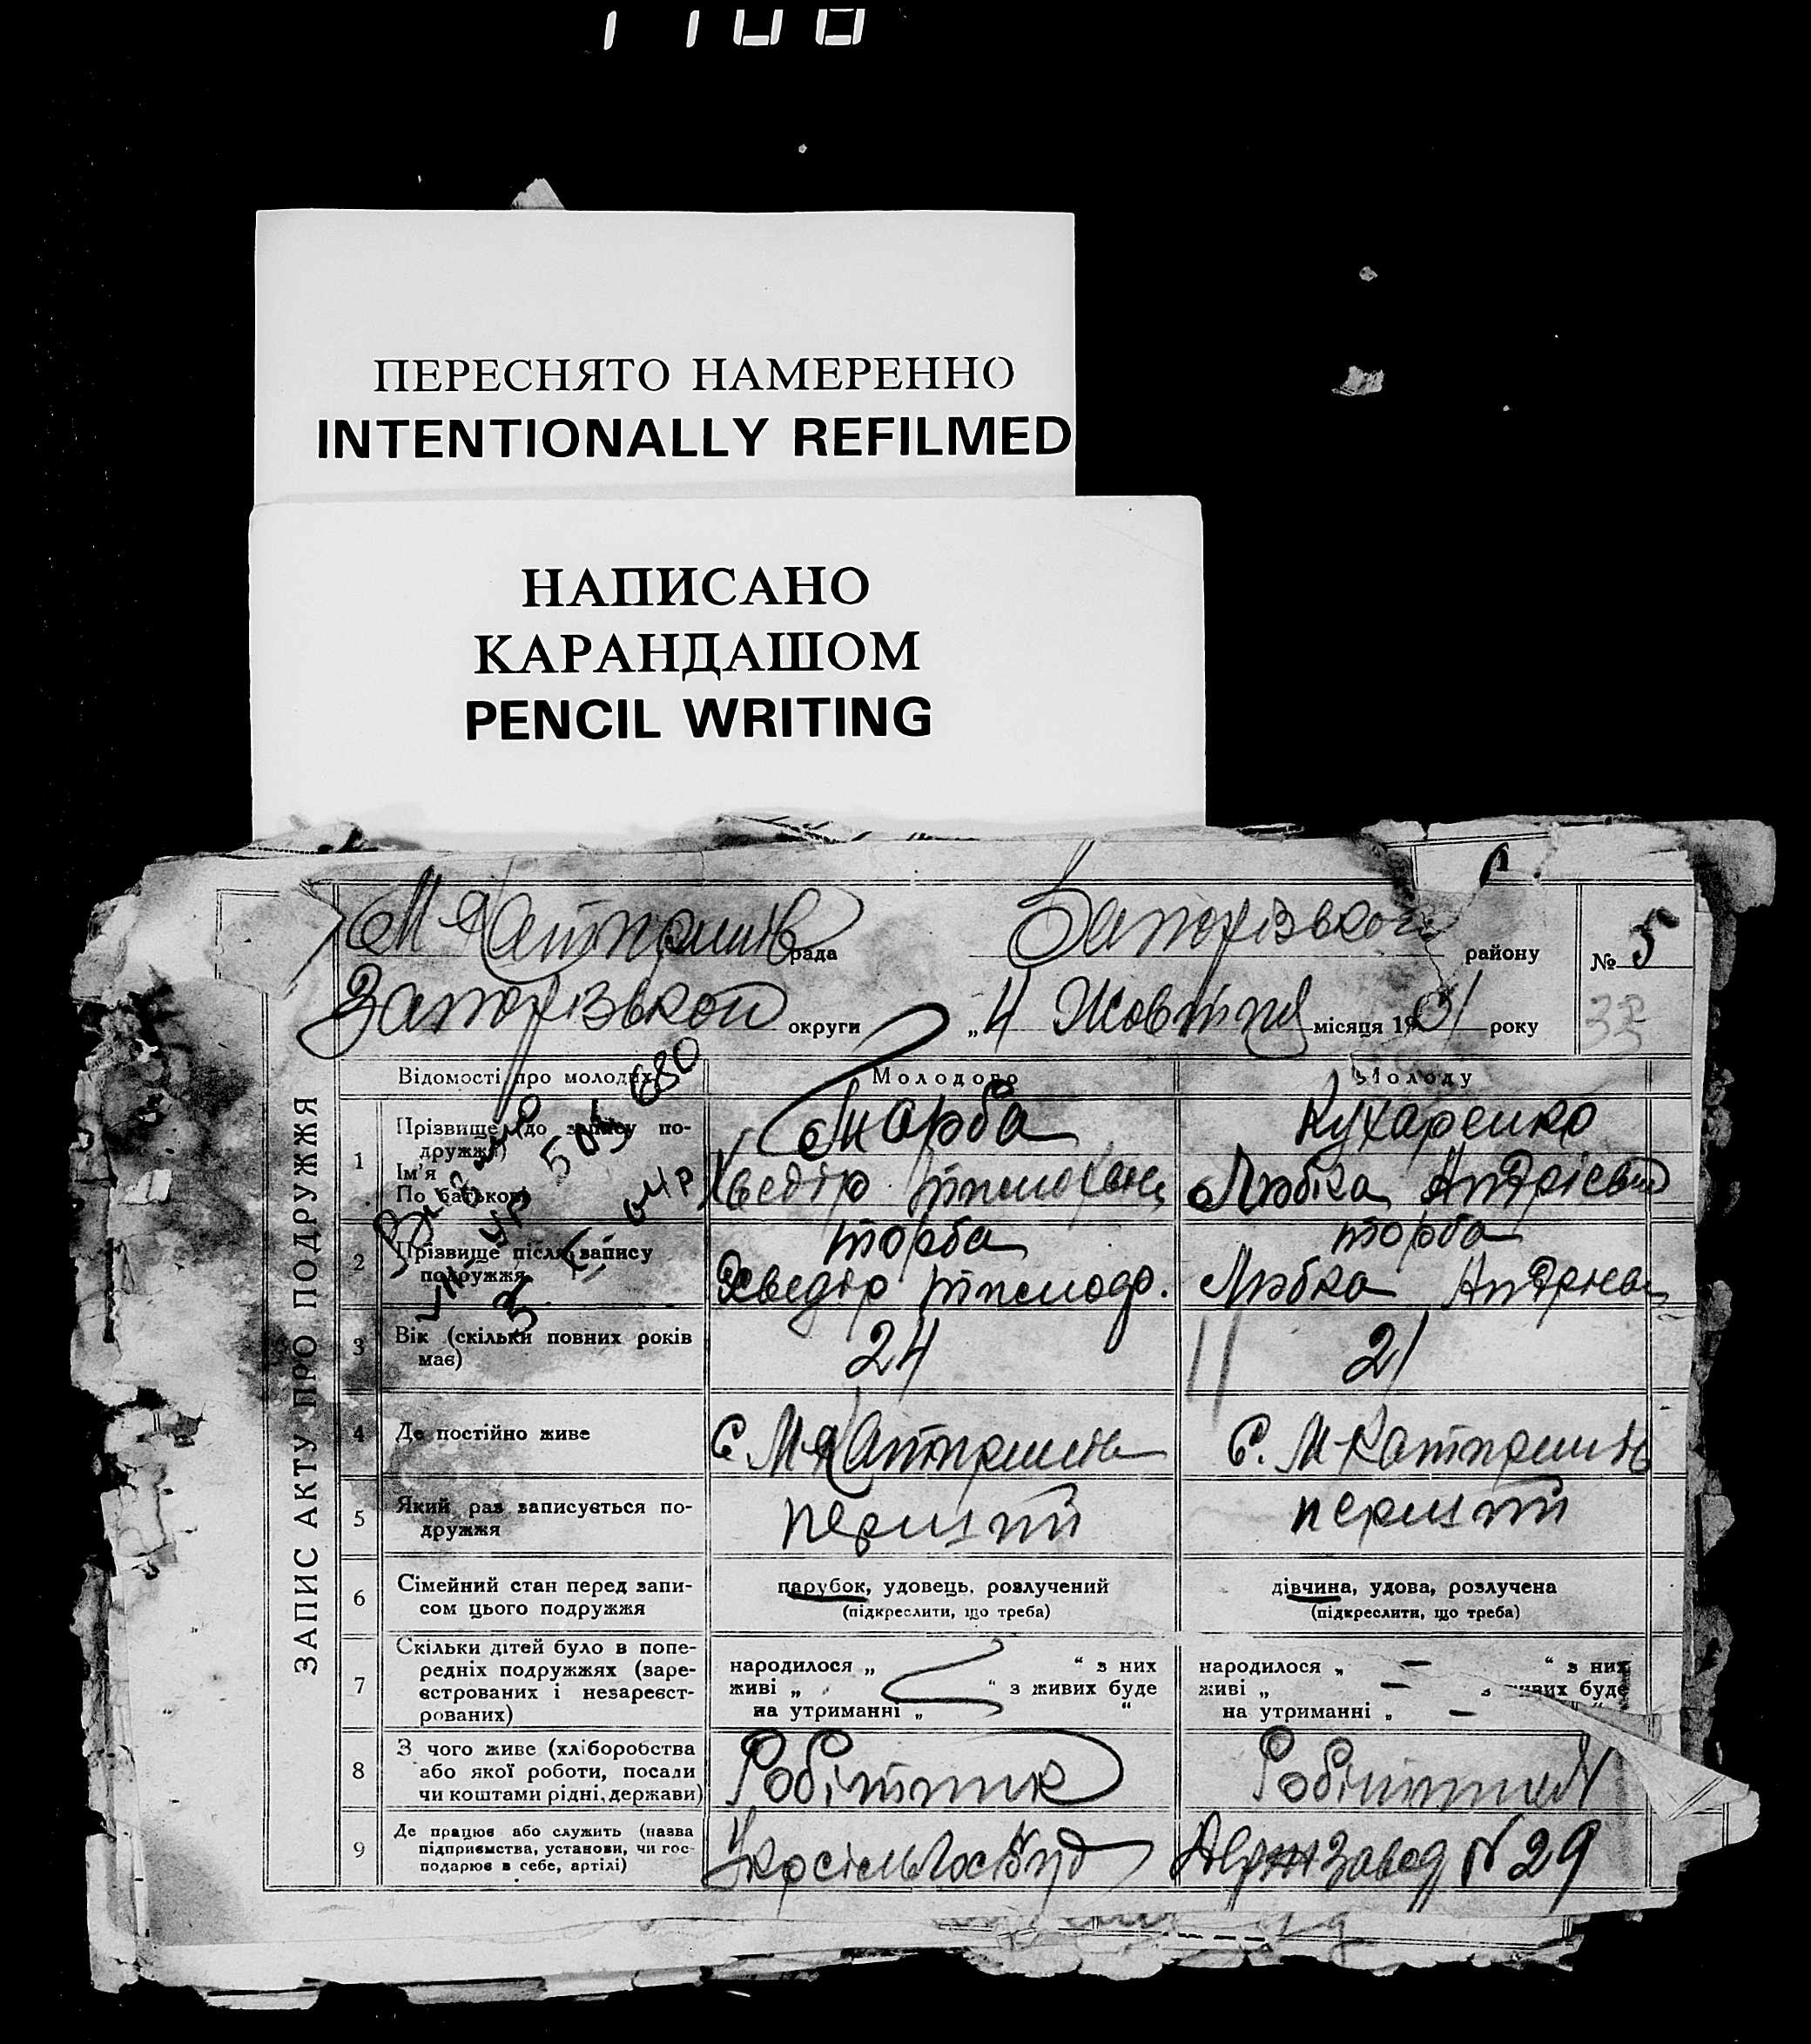 ПЕРЕСНЯТО НАМЕРЕННО
INTENTIONALLY REFILMED
НАПИСАНО
КАРАНДАШОМ
PENCIL WRITING
рада Запорізького району № 5
Запорізької округи „4 Жовтня місяця 1931 року
ЗАПИС АКТУ ПРО ПОДРУЖЖЯ
Відомості про молодих Молодого Молоду
1 Прізвище (до запису подружжя) Торба Кухаренко
Ім'я
По батькові Хведір Любка Андрієвна
2 Прізвище після запису подружжя Торба Торба
Хведір Любка
3 Вік (скільки повних років має) 24 21
4 Де постійно живе С. С.
5 Який раз записується подружжя перший перший
6 Сімейний стан перед записом цього подружжя парубок, удовець, розлучений дівчина, удова, розлучена
(підкреслити, що треба) (підкреслити, що треба)
7 Скільки дітей було в попередніх подружжях (зареєстрованих і незареєстрованих)
народилося „ “ з них народилося „ — “ з них
живі „ “ з живих буде живі „ — з живих буде
на утриманні „ “ на утриманні „ — “
8 З чого живе (хліборобства або якої роботи, посади чи коштами рідні, держави) Робітник
9 Де працює або служить (назва підприємства, установи, чи господарює в себе, артілі) завод N 29